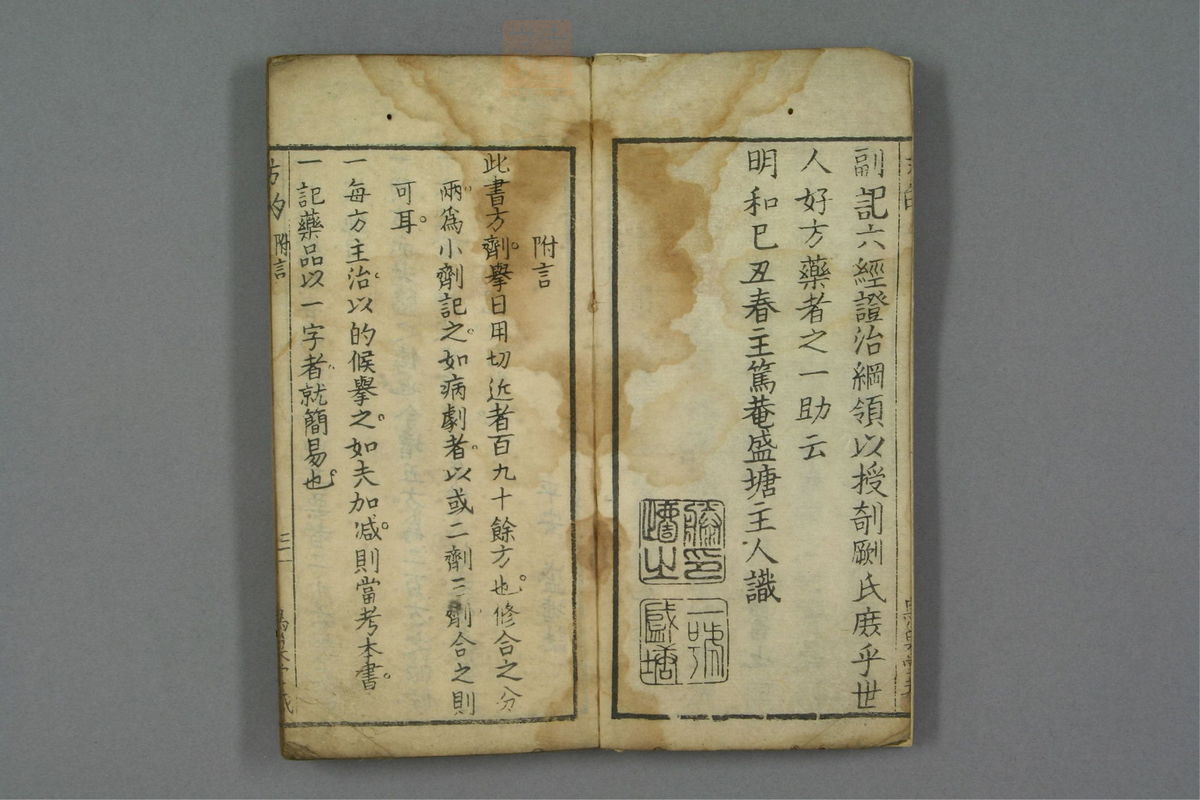 副記六經證治綱領以授剞劂氏庻乎世
人好方藥者之一助云
明和己丑春主篤菴盛塘主人識
附言
此書方劑擧日用切近者百九十餘方也修合之分
兩爲小劑記之如病劇者以或二劑三劑合之則
可耳
一每方主治以的候擧之如夫加减則當考本書
一記藥品以一字者就簡易也
方的 附言 三